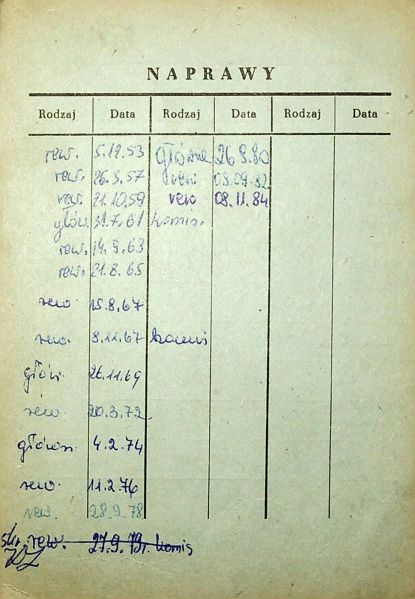 NAPRAWY
Rodzaj Data Rodzaj Data Rodzaj Data
rew. 5.12.53 główna 26.9.80
rew. 26.3.57 rew 03.09.82
rew. 21.10.59 rew 08.11.84
główn 31.7.61 komis.
rew. 14.9.63
rew. 21.8.65
rew 15.8.67
rew. 8.11.67 komis
główn 26.11.69
rew. 20.3.72
główn. 4.2.74
rew 11.2.76
rew. 28.9.78
rew. 27.9.79r. komis